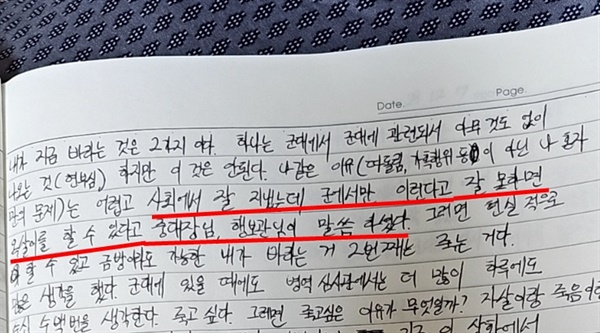 Date. Page.
내가 지금 바라는 것은 2가지 이다. 하나는 군대에서 군대에 관련되서 아무 것도 없이
나오는 것(현부심) 하지만 이 것은 안된다. 나같은 이유(따돌림, 가혹행위 등이 아닌 나 혼자
만의 문제)는 어렵고 사회에서 잘 지냈는데 군에서만 이런다고 잘 못하면
옥살이를 할 수 있다고 중대장님, 행보관님이 말씀 하셨다. 그러면 현실 적으로
할 수 있고 금방이라도 가능한 내가 바라는 거 2번째는 죽는 거다.
같은 생각을 했다. 군대에 있을 때에도 병역 심사관에서는 더 많이 하루에도
수백번을 생각한다. 죽고 싶다. 그러면 죽고싶은 이유가 무엇일까? 자살이랑 죽음이랑
상황에서